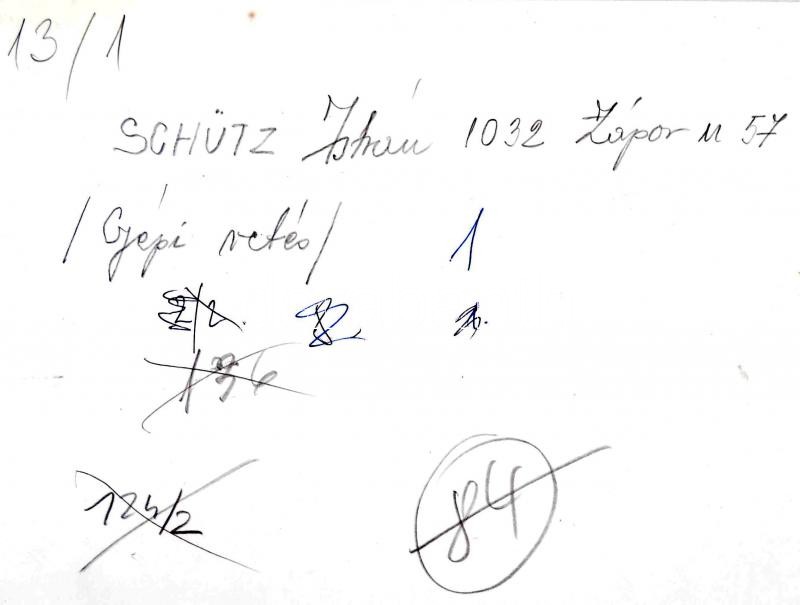 13/1
SCHÜTZ István 1032 Zápor u 57
/Gépi vetés/ 1
136
124/2 84